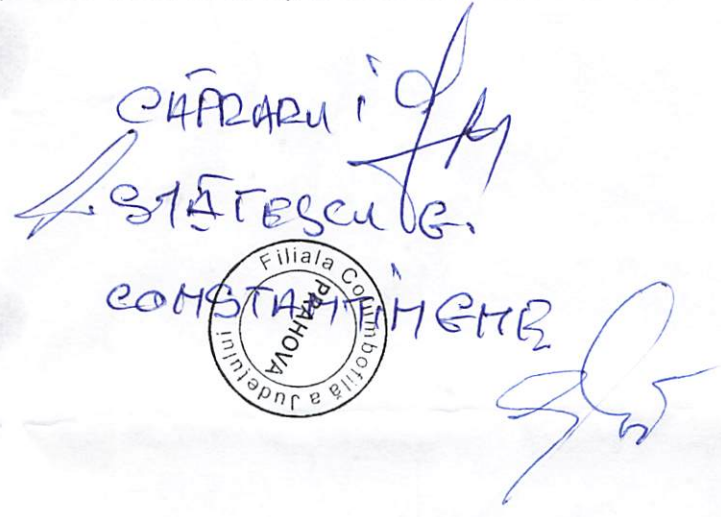 CĂPRARU I
STĂTESCU G.
CONSTANTIN GHE
Filiala Columbofilă a Județului
PRAHOVA